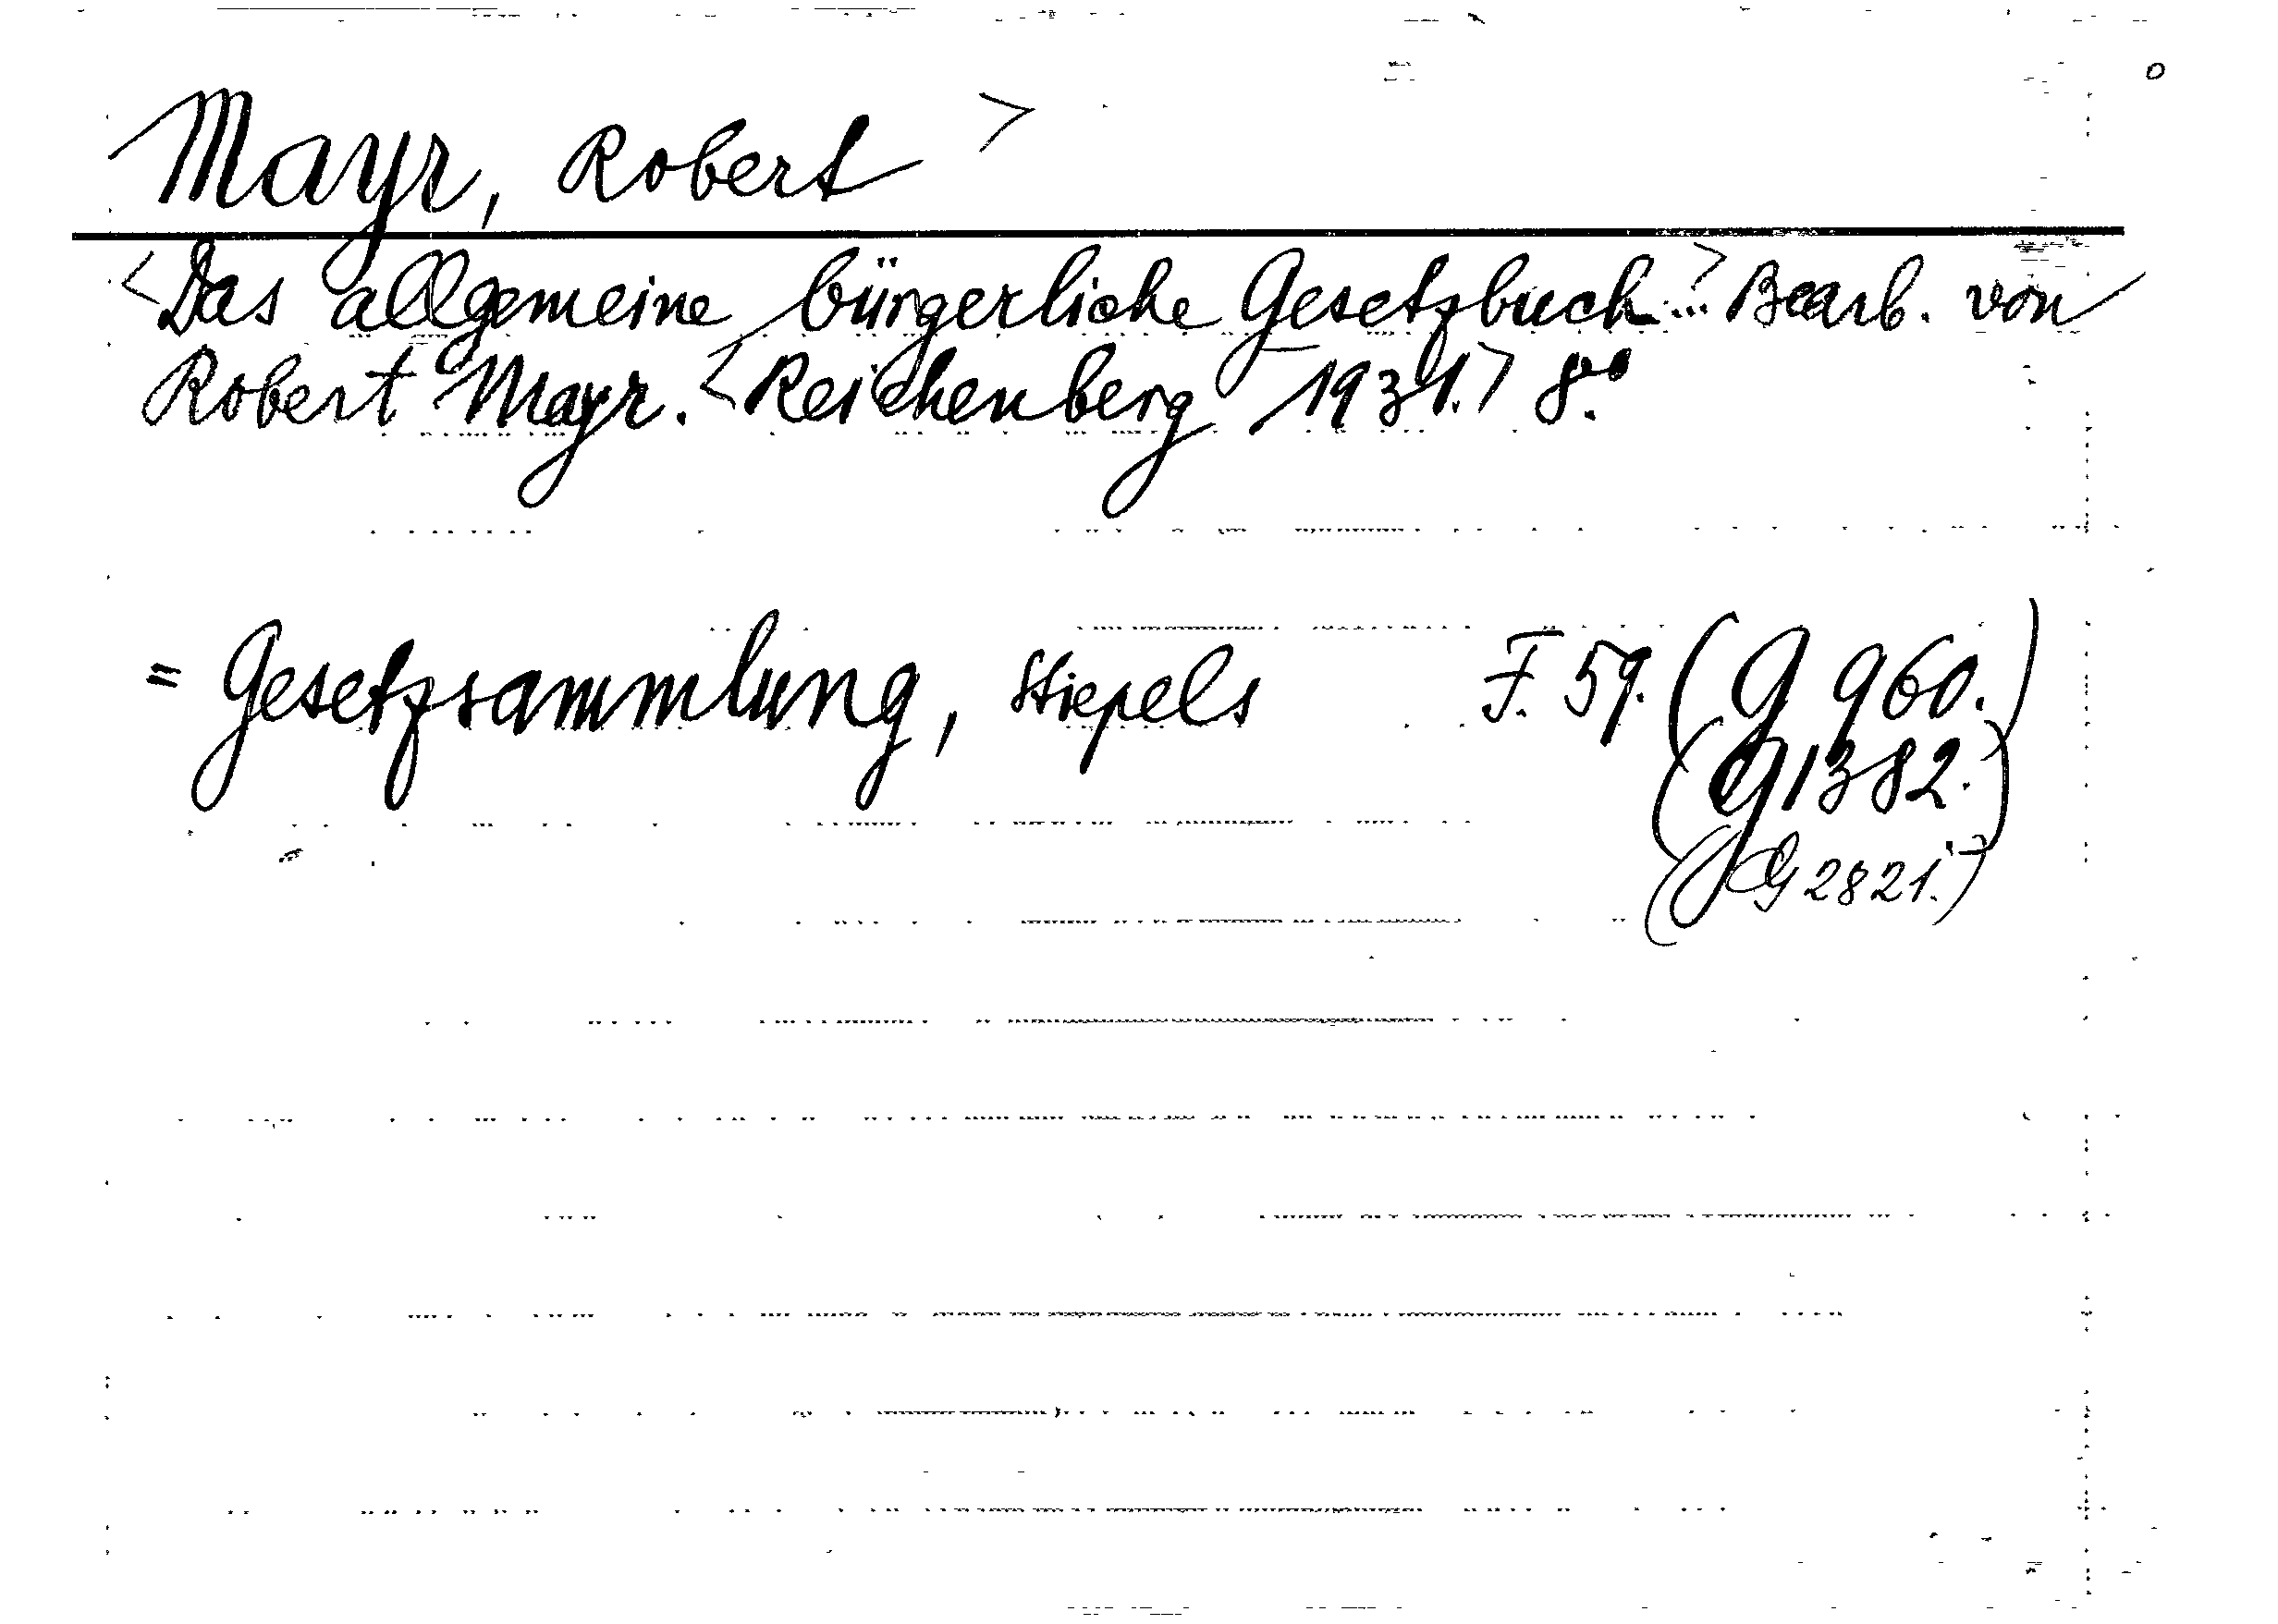 Mayr, Robert >
<Das allgemeine bürgerliche Gesetzbuch...> Bearb. von
Robert Mayr. <Reichenberg 1931.> 8°.
= Gesetzsammlung, Stiepels F. 59. (G 960.)
(G 1382.)
(G 2821.)